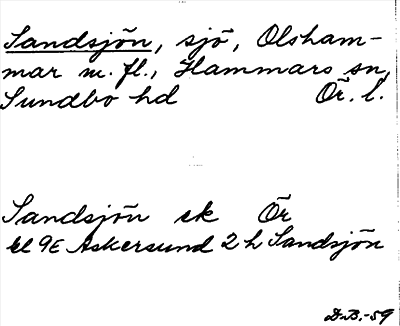 Sandsjön, sjö, Olsham-
mar m. fl., Hammars sn,
Sundbo hd Ör. l.
Sandsjön ek Ör
bl 9E Askersund 2 h Sandsjön
D.B.-59